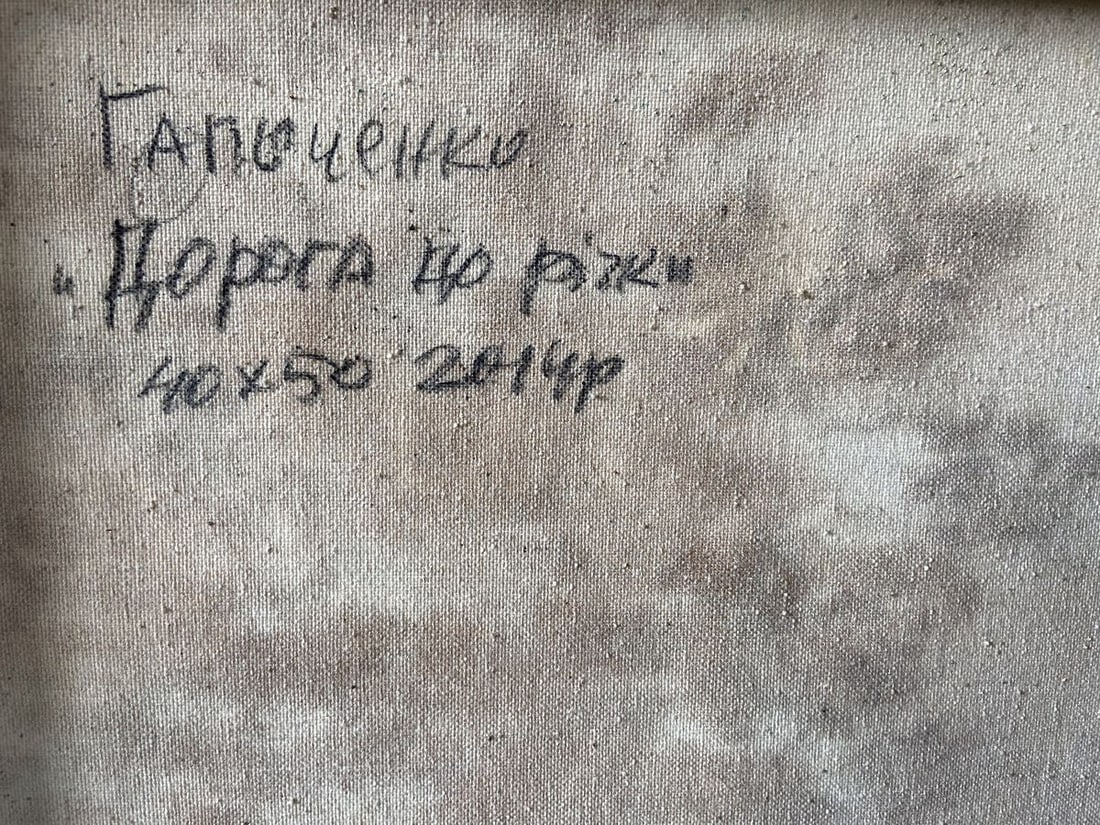 Гапоченко
"Дорога до річки"
40х50 2014р